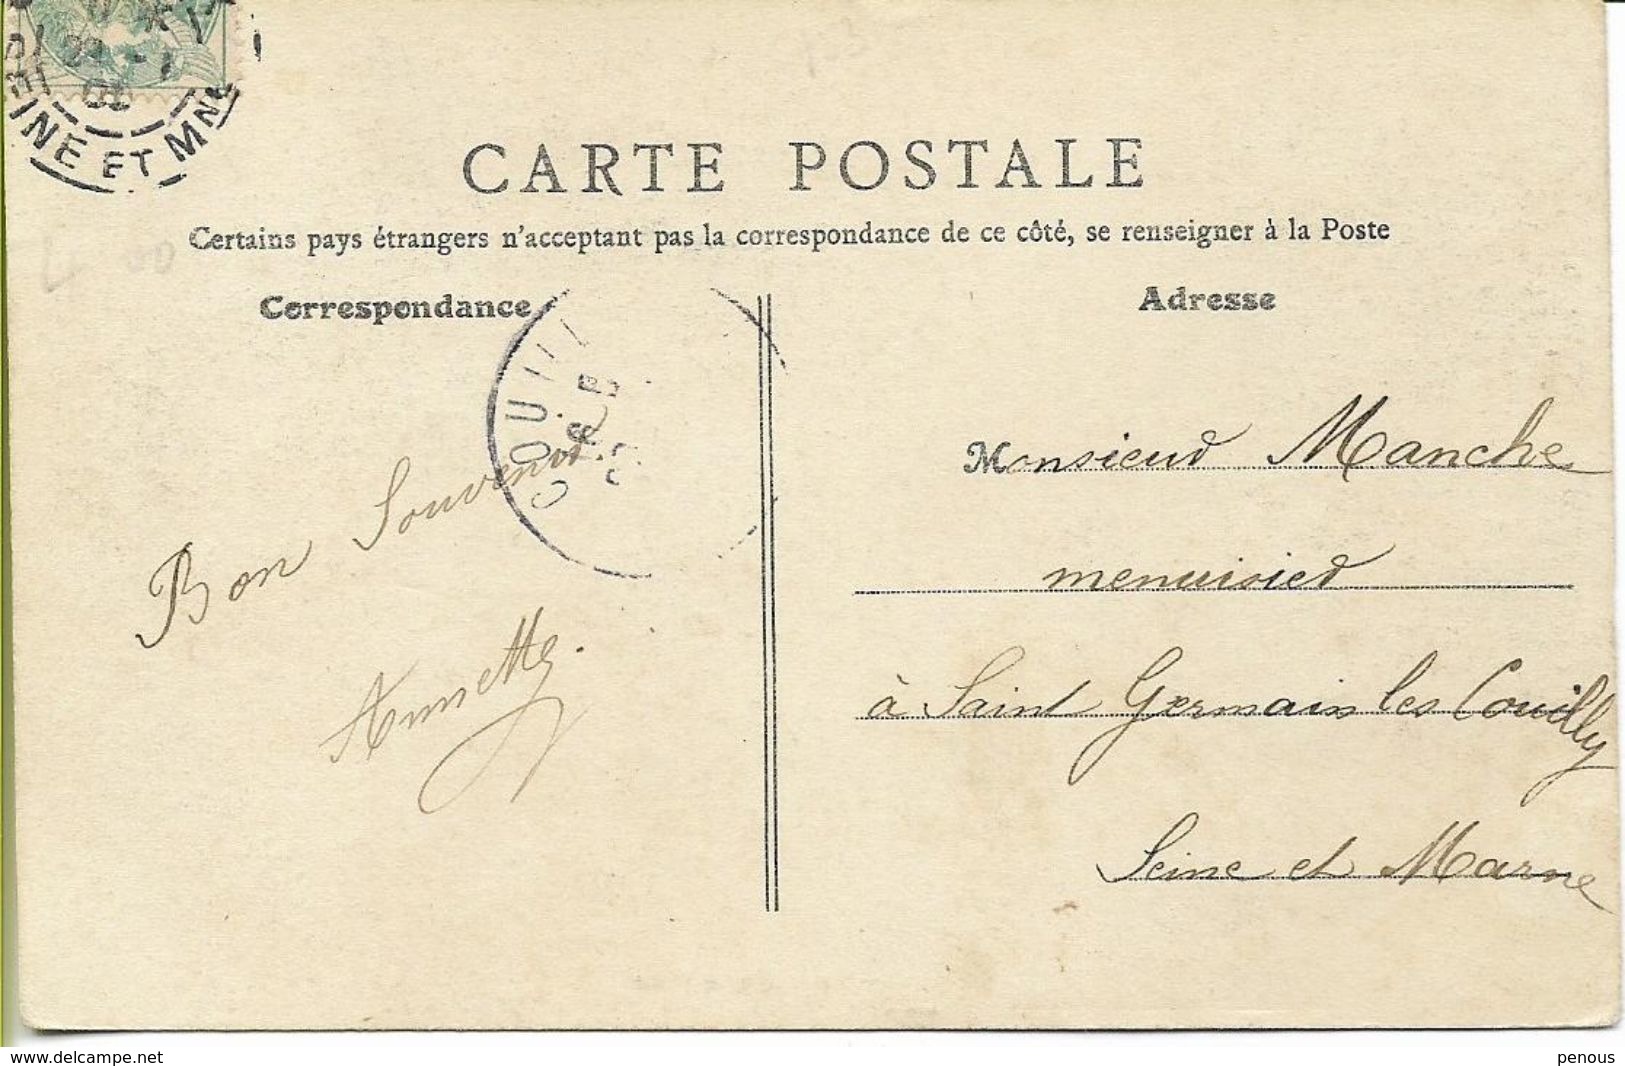 INE ET MNE
CARTE POSTALE
Certains pays étrangers n'acceptant pas la correspondance de ce côté, se renseigner à la Poste
Correspondance
Adresse
COUILL
Bon Souvenir.
Annette.
Monsieur Manche
menuisier
à Saint Germain les Couilly
Seine et Marne
www.delcampe.net
penous